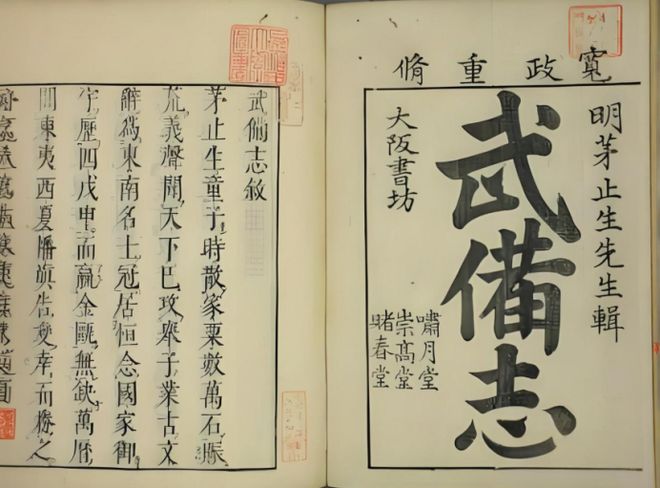 寛政重脩
明茅止生先生輯
武備志
嘯月堂
崇高堂
賭春堂
大阪書坊
武備志敘
茅止生童子時散家粟數萬石賑
荒義聲聞天下已攻舉子業古文
辭爲東南名士冠居恒念國家御
宇歷四戊申而贏金甌無缺萬曆
間東夷西夏旛旗告變幸而勝之